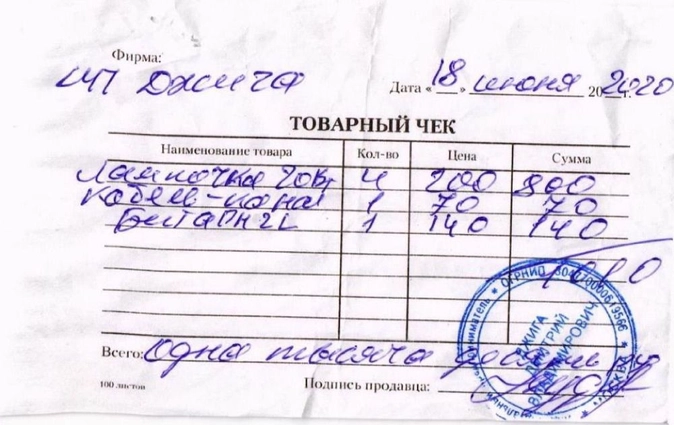 Фирма:
ИП Джига
Дата «18» июня 202020г.
ТОВАРНЫЙ ЧЕК
Наименование товара Кол-во Цена Сумма
Лампочка 40Вт 4 200 800
Кабель-кана 1 70 70
1 140 140
1010
Всего: одна тысяча десять руб
100 листов Подпись продавца:
ОГРНИП
ДЖИГА
ДМИТРИЙ
ВЛАДИМИРОВИЧ
МОСКВА